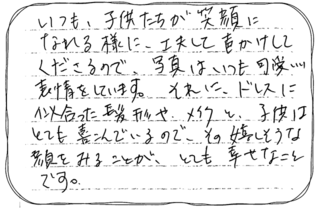 いつも、子供たちが笑顔に
なれる様に、工夫して声かけして
くださるので、写真はいつも可愛い
表情をしています。それに、ドレスに
似合った髪形や、メイクと、子供は
とても喜こんでいるので、その嬉しそうな
顔をみることが、とても幸せなこと
です。